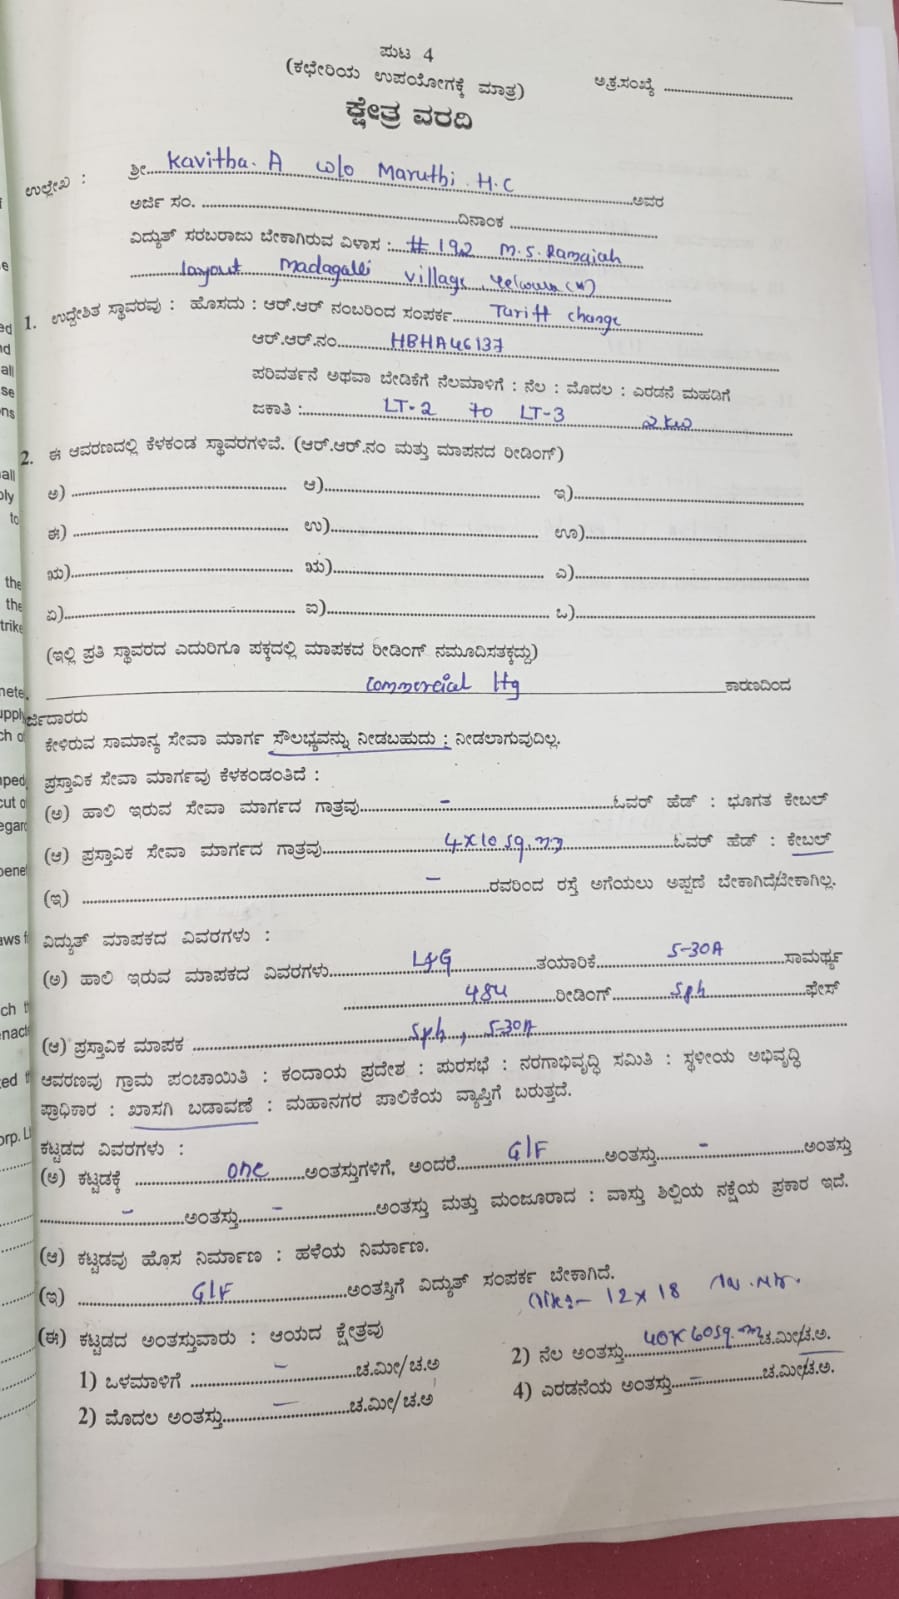 ಪುಟ 4
(ಕಛೇರಿಯ ಉಪಯೋಗಕ್ಕೆ ಮಾತ್ರ) ಅ.ಕ್ರ.ಸಂಖ್ಯೆ
ಕ್ಷೇತ್ರ ವರದಿ
ಉಲ್ಲೇಖ : ಶ್ರೀ Kavitha. A w/o Maruthi. H.C ಅವರ
ಅರ್ಜಿ ಸಂ. ದಿನಾಂಕ
ವಿದ್ಯುತ್ ಸರಬರಾಜು ಬೇಕಾಗಿರುವ ವಿಳಾಸ : #192 M.S. Ramaiah
layout Madagalli village,
1. ಉದ್ದೇಶಿತ ಸ್ಥಾವರವು : ಹೊಸದು : ಆರ್.ಆರ್ ನಂಬರಿಂದ ಸಂಪರ್ಕ Tariff change
ಆರ್.ಆರ್.ನಂ. HBHA46137
ಪರಿವರ್ತನೆ ಅಥವಾ ಬೇಡಿಕೆಗೆ ನೆಲಮಾಳಿಗೆ : ನೆಲ : ಮೊದಲ : ಎರಡನೆ ಮಹಡಿಗೆ
ಜಕಾತಿ : LT-2 to LT-3 2KW
2. ಈ ಆವರಣದಲ್ಲಿ ಕೆಳಕಂಡ ಸ್ಥಾವರಗಳಿವೆ. (ಆರ್.ಆರ್.ನಂ ಮತ್ತು ಮಾಪನದ ರೀಡಿಂಗ್)
ಅ) ಆ) ಇ)
ಈ) ಉ) ಊ)
ಋ) ಋ) ಎ)
ಏ) ಐ) ಒ)
(ಇಲ್ಲಿ ಪ್ರತಿ ಸ್ಥಾವರದ ಎದುರಿಗೂ ಪಕ್ಕದಲ್ಲಿ ಮಾಪಕದ ರೀಡಿಂಗ್ ನಮೂದಿಸತಕ್ಕದ್ದು)
Commercial ltg ಕಾರಣದಿಂದ
ರ್ಜಿದಾರರು
ಕೇಳಿರುವ ಸಾಮಾನ್ಯ ಸೇವಾ ಮಾರ್ಗ ಸೌಲಭ್ಯವನ್ನು ನೀಡಬಹುದು : ನೀಡಲಾಗುವುದಿಲ್ಲ.
ಪ್ರಸ್ತಾವಿಕ ಸೇವಾ ಮಾರ್ಗವು ಕೆಳಕಂಡಂತಿದೆ :
(ಅ) ಹಾಲಿ ಇರುವ ಸೇವಾ ಮಾರ್ಗದ ಗಾತ್ರವು - ಓವರ್ ಹೆಡ್ : ಭೂಗತ ಕೇಬಲ್
(ಆ) ಪ್ರಸ್ತಾವಿಕ ಸೇವಾ ಮಾರ್ಗದ ಗಾತ್ರವು 4x10 sq.mm ಓವರ್ ಹೆಡ್ : ಕೇಬಲ್
(ಇ) - ರವರಿಂದ ರಸ್ತೆ ಅಗೆಯಲು ಅಪ್ಪಣೆ ಬೇಕಾಗಿದೆ/ಬೇಕಾಗಿಲ್ಲ.
ವಿದ್ಯುತ್ ಮಾಪಕದ ವಿವರಗಳು :
(ಅ) ಹಾಲಿ ಇರುವ ಮಾಪಕದ ವಿವರಗಳು L&G ತಯಾರಿಕೆ 5-30A ಸಾಮರ್ಥ್ಯ
484 ರೀಡಿಂಗ್ Sph ಫೇಸ್
(ಆ) ಪ್ರಸ್ತಾವಿಕ ಮಾಪಕ Sph, 5-30A
ಆವರಣವು ಗ್ರಾಮ ಪಂಚಾಯಿತಿ : ಕಂದಾಯ ಪ್ರದೇಶ : ಪುರಸಭೆ : ನರಗಾಭಿವೃದ್ಧಿ ಸಮಿತಿ : ಸ್ಥಳೀಯ ಅಭಿವೃದ್ಧಿ
ಪ್ರಾಧಿಕಾರ : ಖಾಸಗಿ ಬಡಾವಣೆ : ಮಹಾನಗರ ಪಾಲಿಕೆಯ ವ್ಯಾಪ್ತಿಗೆ ಬರುತ್ತದೆ.
ಕಟ್ಟಡದ ವಿವರಗಳು :
(ಅ) ಕಟ್ಟಡಕ್ಕೆ one ಅಂತಸ್ತುಗಳಿಗೆ, ಅಂದರೆ G/F ಅಂತಸ್ತು - ಅಂತಸ್ತು
- ಅಂತಸ್ತು - ಅಂತಸ್ತು ಮತ್ತು ಮಂಜೂರಾದ : ವಾಸ್ತು ಶಿಲ್ಪಿಯ ನಕ್ಷೆಯ ಪ್ರಕಾರ ಇದೆ.
(ಆ) ಕಟ್ಟಡವು ಹೊಸ ನಿರ್ಮಾಣ : ಹಳೆಯ ನಿರ್ಮಾಣ.
(ಇ) G/F ಅಂತಸ್ತಿಗೆ ವಿದ್ಯುತ್ ಸಂಪರ್ಕ ಬೇಕಾಗಿದೆ.
12 x 18
(ಈ) ಕಟ್ಟಡದ ಅಂತಸ್ತುವಾರು : ಆಯದ ಕ್ಷೇತ್ರವು
1) ಒಳಮಾಳಿಗೆ - ಚ.ಮೀ/ಚ.ಅ 2) ನೆಲ ಅಂತಸ್ತು 40x60sq.m ಚ.ಮೀ/ಚ.ಅ.
2) ಮೊದಲ ಅಂತಸ್ತು - ಚ.ಮೀ/ಚ.ಅ 4) ಎರಡನೆಯ ಅಂತಸ್ತು - ಚ.ಮೀ/ಚ.ಅ.